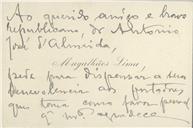 Ao querido amigo e bravo
republicano, Dr Antonio
José d'Almeida,
Magalhães Lima,
pede para dispensar a sua
benevolencia ao portador,
que toma como favor pessoal
q mto agradece